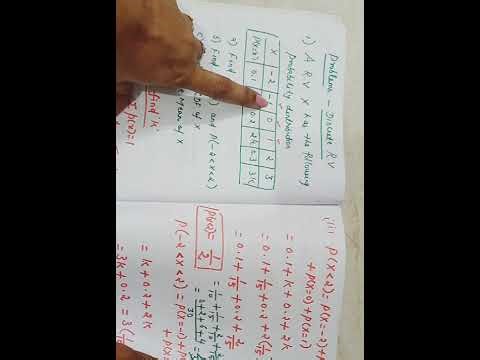 Problems - Discrete RV
1) A RV X has the following
probability distribution
X -2 -1 0 1 2 3
P(X=x) 0.1 0.2 2k 0.3 3k
a) Find
b) Find and P(-2<x<2)
CDF of X
mean of X
find 'k'
Σ P(x)=1
iii) P(X<2) = P(X=-2)+
+P(X=0)+P(X=1)
= 0.1+k+0.2+2k
= 0.1+1/15+0.2+2(1/15
= 0.1+1/15+0.2+2/15
= 1/10+1/15+2/10+2/15
= 3+2+6+4/30
P(x<2) = 1/2
P(-2<x<2) = P(X=-1)+
+P(X=
= k+0.2+2k
= 3k+0.2 = 3(1/15